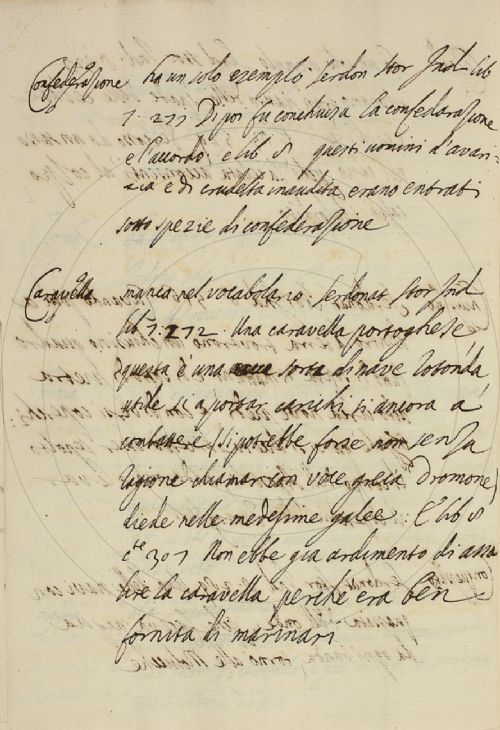 Confederazione ha un solo exemplo Serdon Stor Ind lib
7. 277 Dipoi fu conchiusa la confedarazione
e l'accordo; e lib 8 questi uomini d'avari=
zia e di crudeltà inaudita erano entrati
sotto spezie di confederazione
Caravella manca nel vocabolario Serdonat Stor Ind
lib 7. 272 Una caravella portoghese,
questa è una sorta di nave rotonda,
utile si a portar carichi si ancora a
combattere (si potrebbe forse non senza
ragione chiamar con voce greca Dromone)
diede nelle medesime galee: E lib 8
cte 307 Non ebbe già ardimento di assa
lire la caravella perche era ben
fornita di marinari